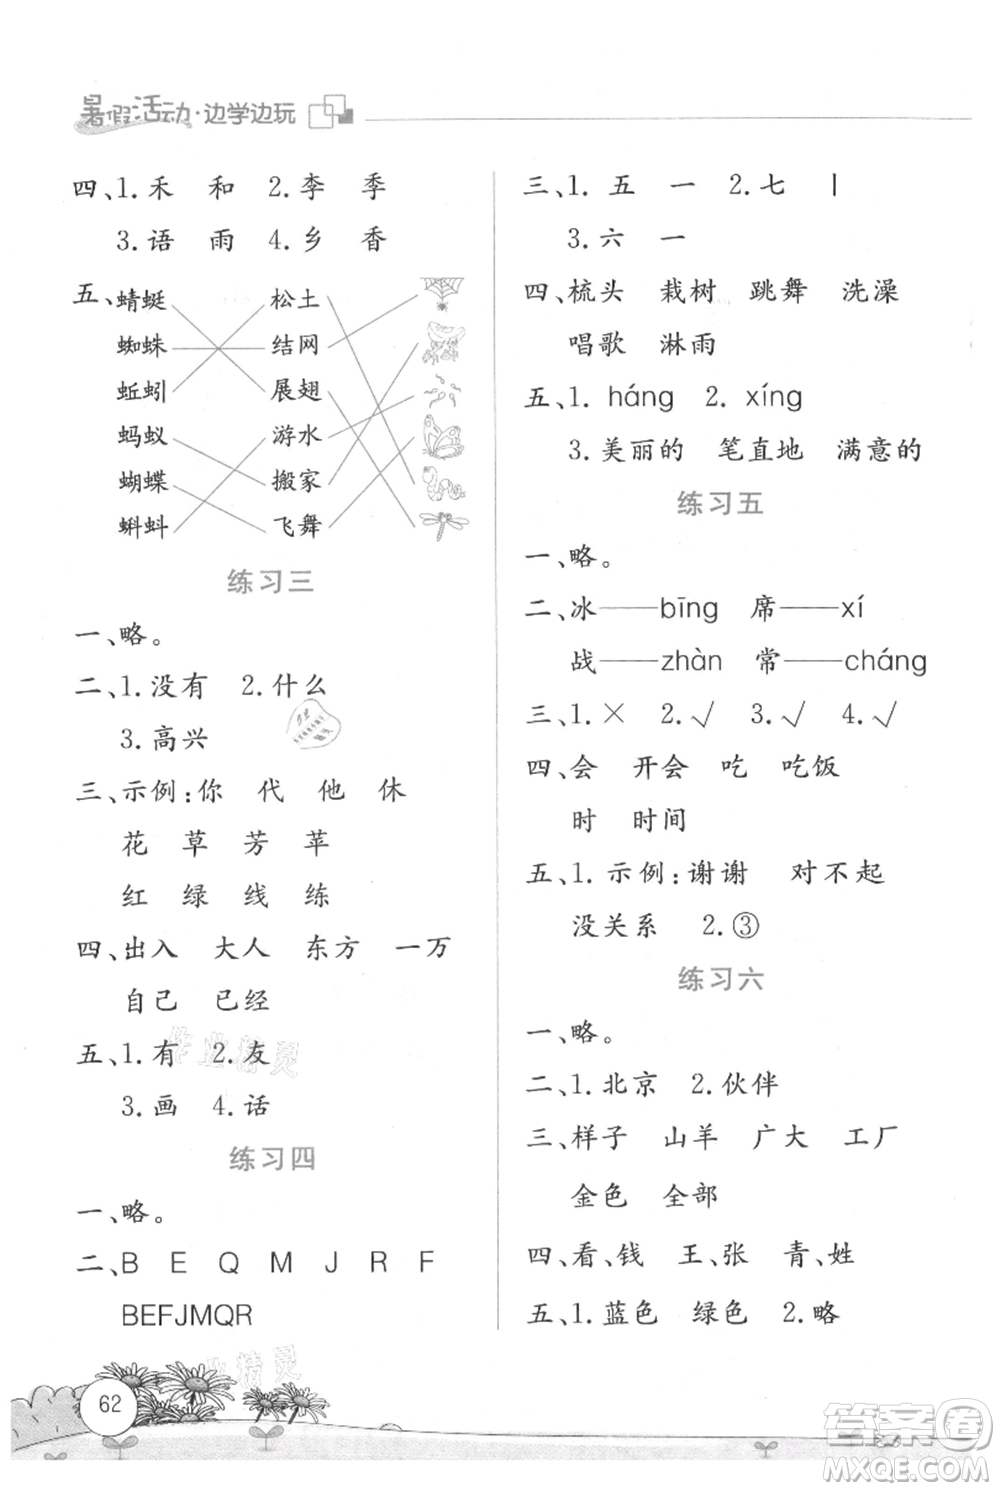 暑假活动·边学边玩
四、1.禾 和 2.李 季
3.语 雨 4.乡 香
五、蜻蜓 松土
蜘蛛 结网
蚯蚓 展翅
蚂蚁 游水
蝴蝶 搬家
蝌蚪 飞舞
练习三
一、略。
二、1.没有 2.什么
3.高兴
三、示例:你 代 他 休
花 草 芳 苹
红 绿 线 练
四、出入 大人 东方 一万
自己 已经
五、1.有 2.友
3.画 4.话
练习四
一、略。
二、B E Q M J R F
BEFJMQR
三、1.五 一 2.七 丨
3.六 一
四、梳头 栽树 跳舞 洗澡
唱歌 淋雨
五、1. háng 2. xíng
3.美丽的 笔直地 满意的
练习五
一、略。
二、冰——bīng 席——xí
战——zhàn 常——cháng
三、1.× 2.√ 3.√ 4.√
四、会 开会 吃 吃饭
时 时间
五、1.示例:谢谢 对不起
没关系 2.③
练习六
一、略。
二、1.北京 2.伙伴
三、样子 山羊 广大 工厂
金色 全部
四、看、钱 王、张 青、姓
五、1.蓝色 绿色 2.略
62
作业精灵
答案圈
MXQE.COM